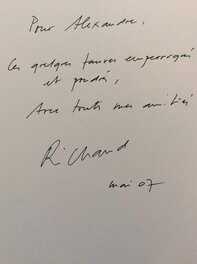 Pour Alexandre,
Ces quelques fauves emperruqués
et poudrés,
Avec toutes mes amitiés
Richard
mai 07